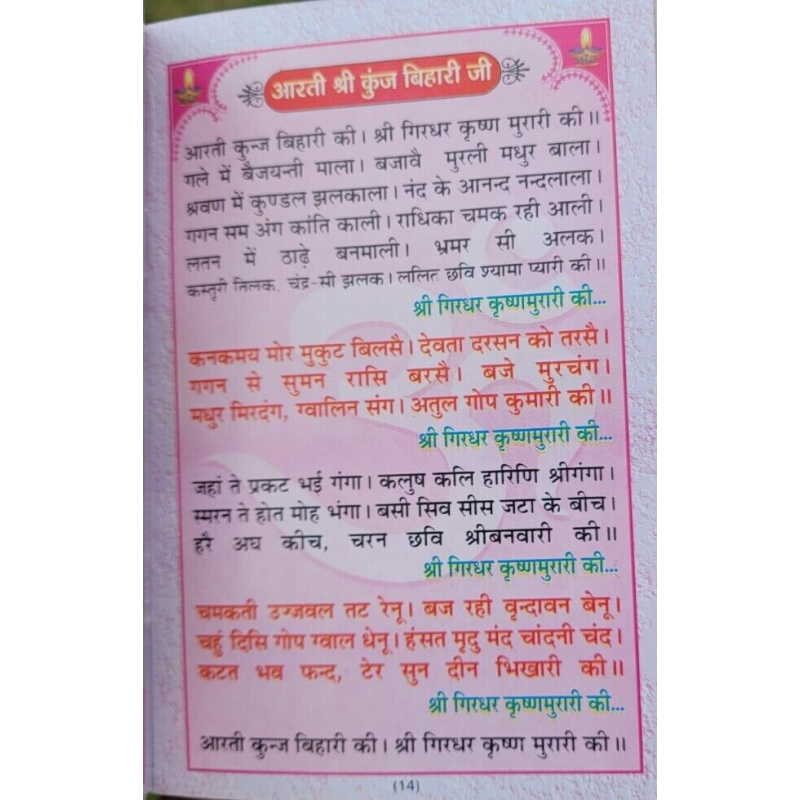 आरती श्री कुंज बिहारी जी
आरती कुन्ज बिहारी की। श्री गिरधर कृष्ण मुरारी की॥
गले में बैजयन्ती माला। बजावै मुरली मधुर बाला।
श्रवण में कुण्डल झलकाला। नंद के आनन्द नन्दलाला।
गगन सम अंग कांति काली। राधिका चमक रही आली।
लतन में ठाढ़े बनमाली। भ्रमर सी अलक।
कस्तूरी तिलक, चंद्र-सी झलक। ललित छवि श्यामा प्यारी की॥
श्री गिरधर कृष्णमुरारी की...
कनकमय मोर मुकुट बिलसै। देवता दरसन को तरसै।
गगन से सुमन रासि बरसै। बजे मुरचंग।
मधुर मिरदंग, ग्वालिन संग। अतुल गोप कुमारी की॥
श्री गिरधर कृष्णमुरारी की...
जहां ते प्रकट भई गंगा। कलुष कलि हारिणि श्रीगंगा।
स्मरन ते होत मोह भंगा। बसी सिव सीस जटा के बीच।
हरै अघ कीच, चरन छवि श्रीबनवारी की॥
श्री गिरधर कृष्णमुरारी की...
चमकती उज्जवल तट रेनू। बज रही वृन्दावन बेनू।
चहुं दिसि गोप ग्वाल धेनू। हंसत मृदु मंद चांदनी चंद।
कटत भव फन्द, टेर सुन दीन भिखारी की॥
श्री गिरधर कृष्णमुरारी की...
आरती कुन्ज बिहारी की। श्री गिरधर कृष्ण मुरारी की॥
(14)